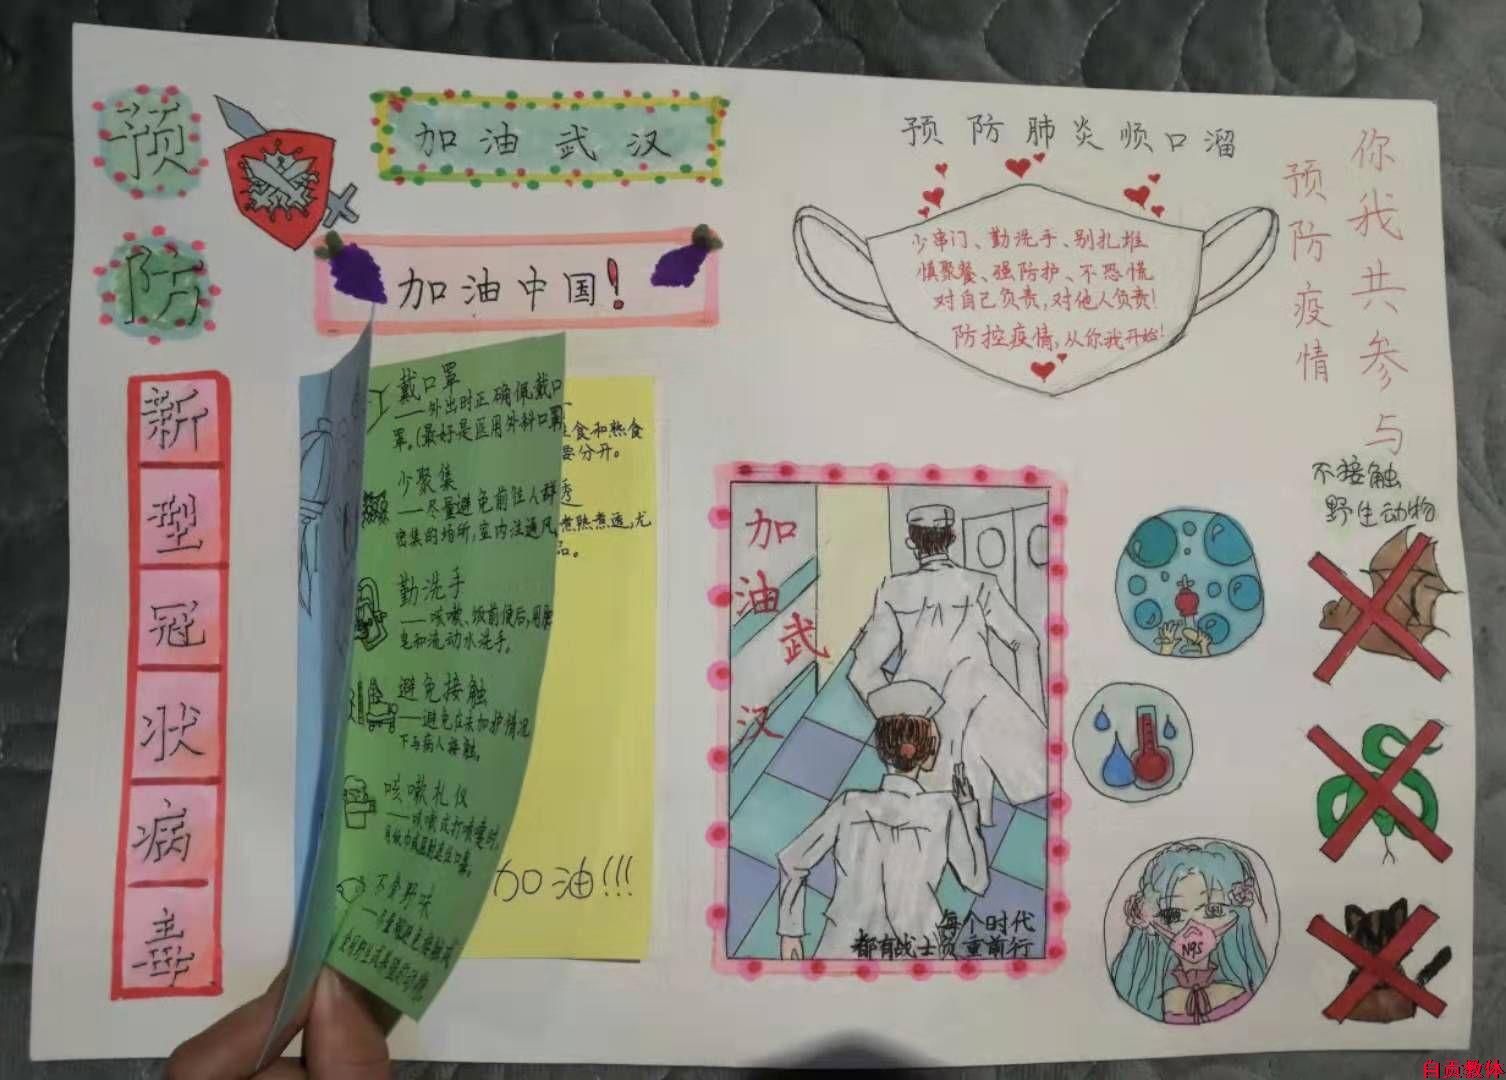 预
防
新
型
冠
状
病
毒
加油武汉
加油中国!
戴口罩
——外出时正确佩戴口
罩。(最好是医用外科口罩
少聚集
——尽量避免前往人群
密集的场所,室内注通风,
勤洗手
——咳嗽、饭前便后,用肥
皂和流动水洗手。
避免接触
——避免在未加护情况
下与病人接触。
咳嗽礼仪
——咳嗽或打喷嚏时,
不食野味
生食和熟食
要分开。
煮熟煮透,尤
品。
加油!!!
预防肺炎顺口溜
少串门、勤洗手、别扎堆
慎聚餐、强防护、不恐慌
对自己负责,对他人负责!
防控疫情,从你我开始!
你我共参与
预防疫情
加
油
武
汉
每个时代
都有战士负重前行
不接触
野生动物
N95
自贡教体